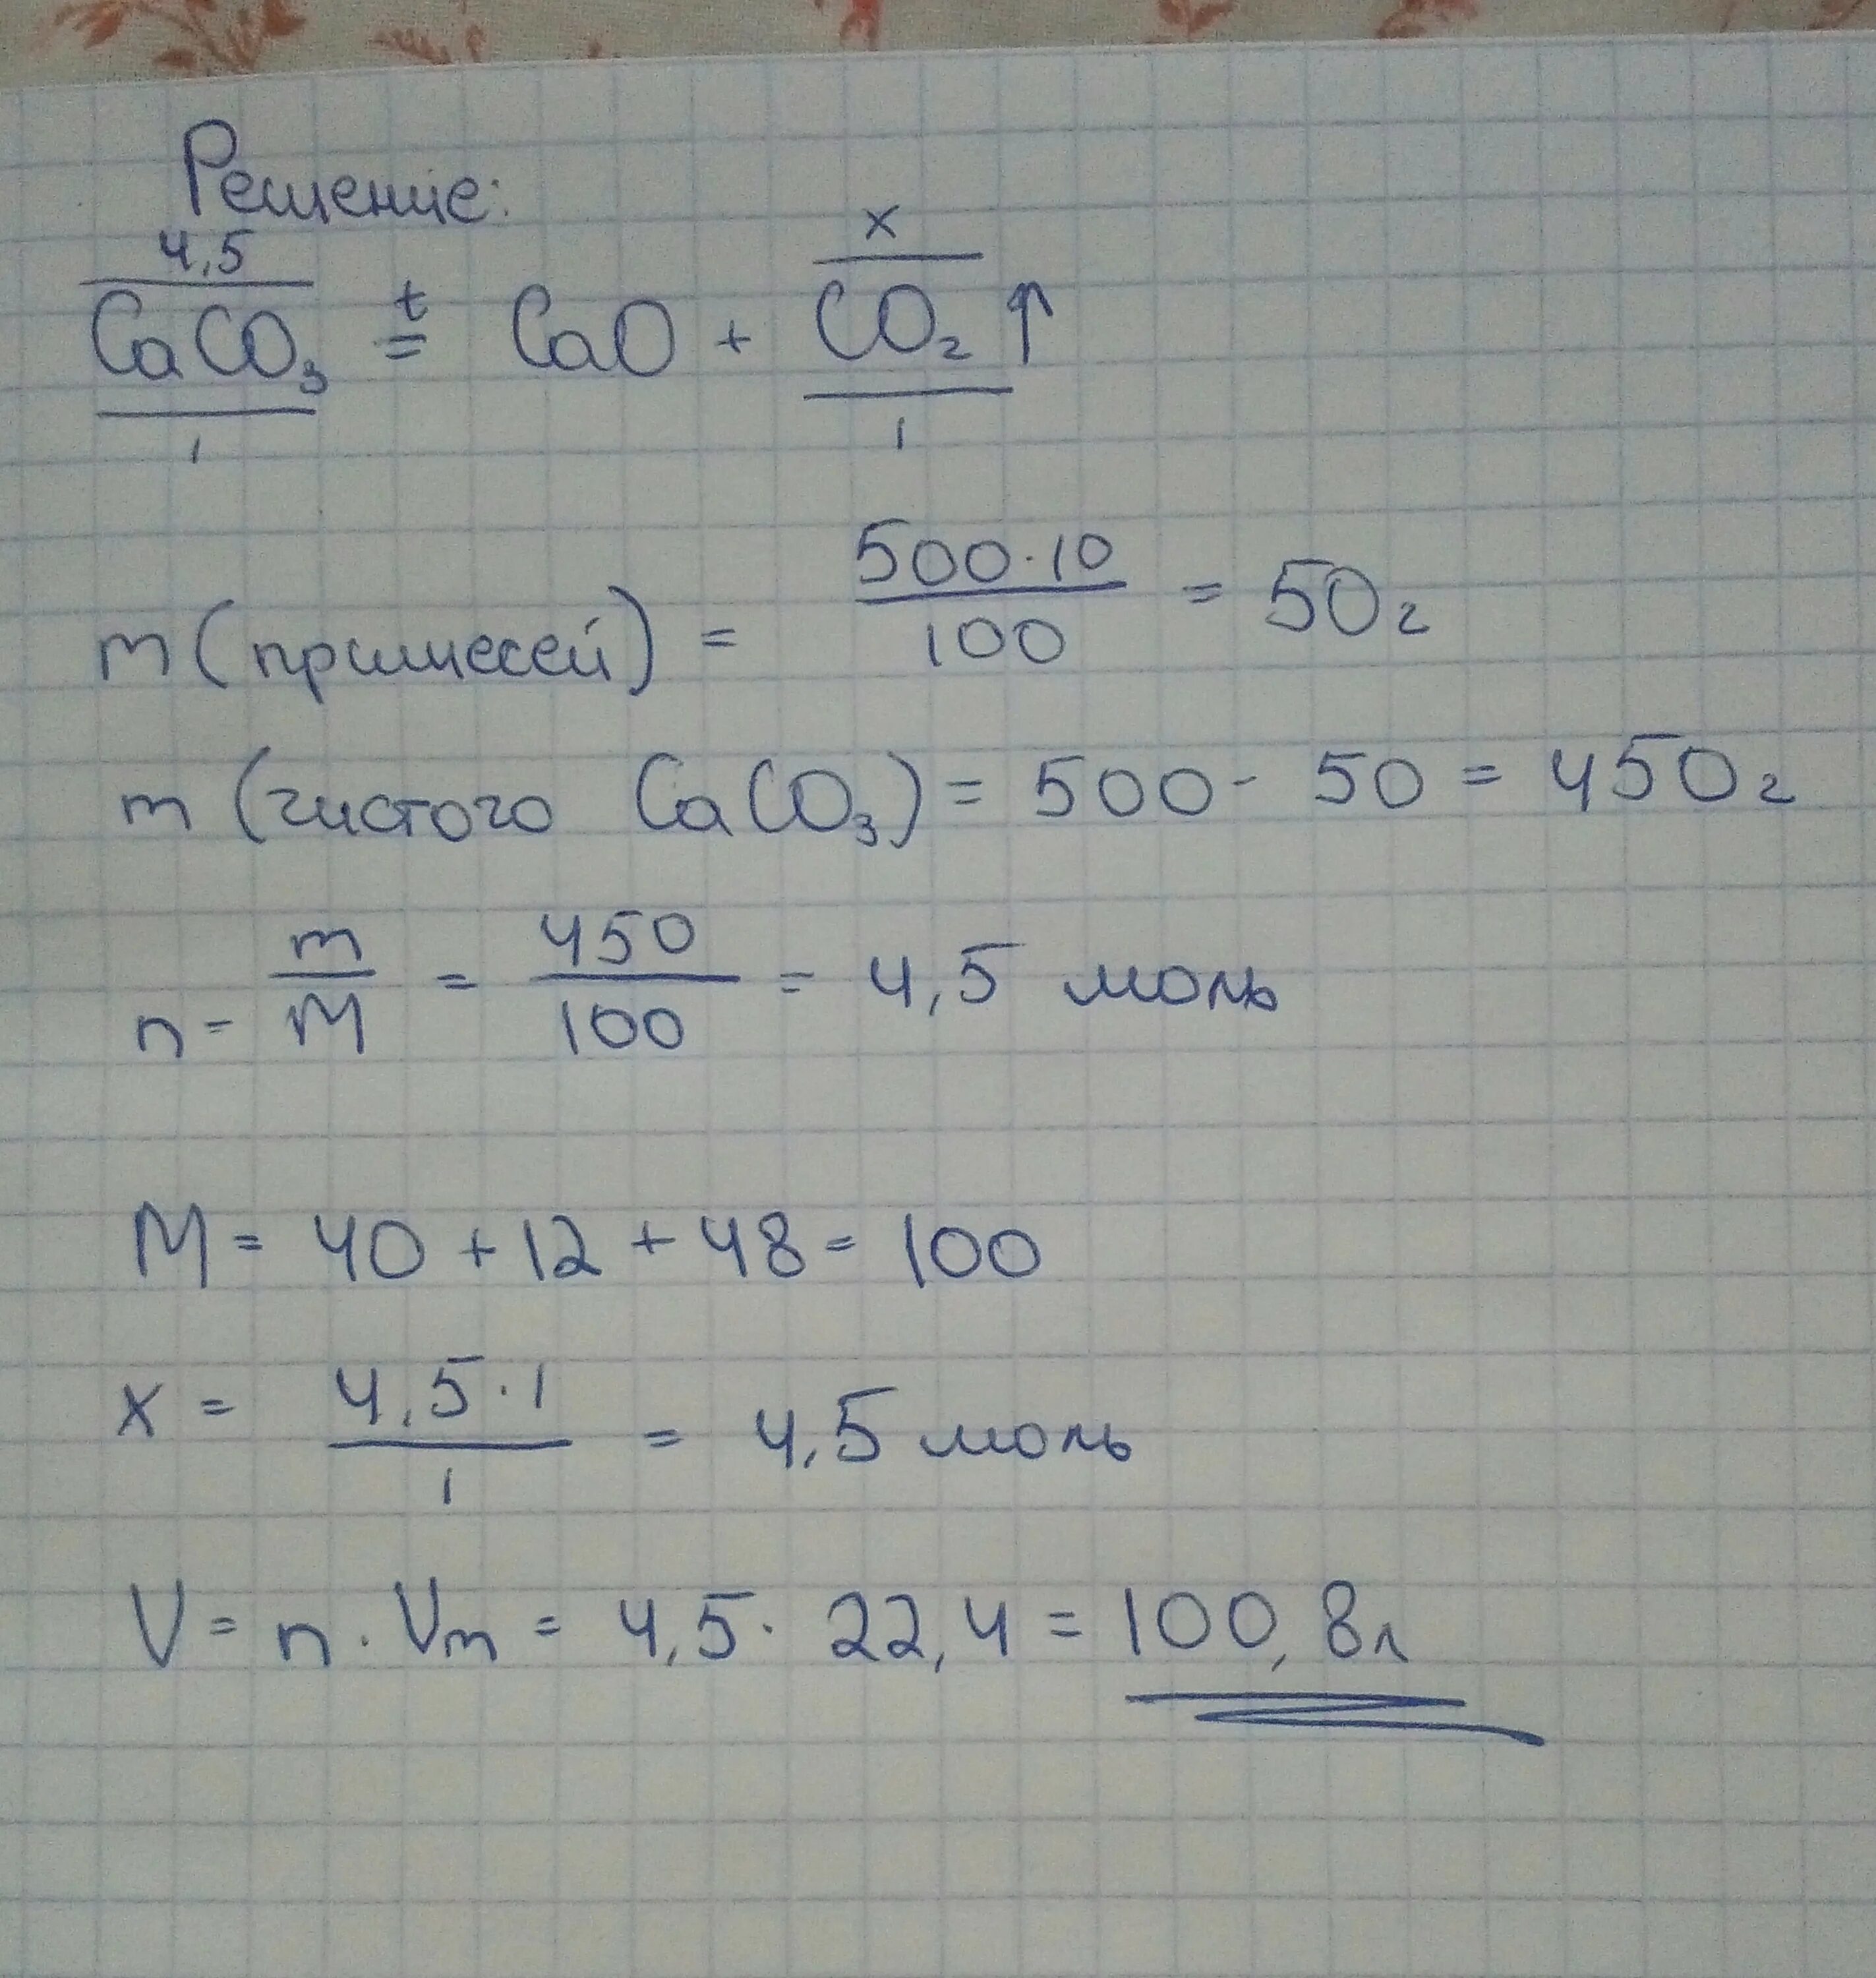 Решение:
4,5 x
CaCO₃ =ᵗ CaO + CO₂ ↑
1 1
m (примесей) = 500·10/100 = 50г
m (чистого CaCO₃) = 500 - 50 = 450г
n = m/M = 450/100 = 4,5 моль
M = 40 + 12 + 48 = 100
x = 4,5·1/1 = 4,5 моль
V = n · Vm = 4,5 · 22,4 = 100,8л